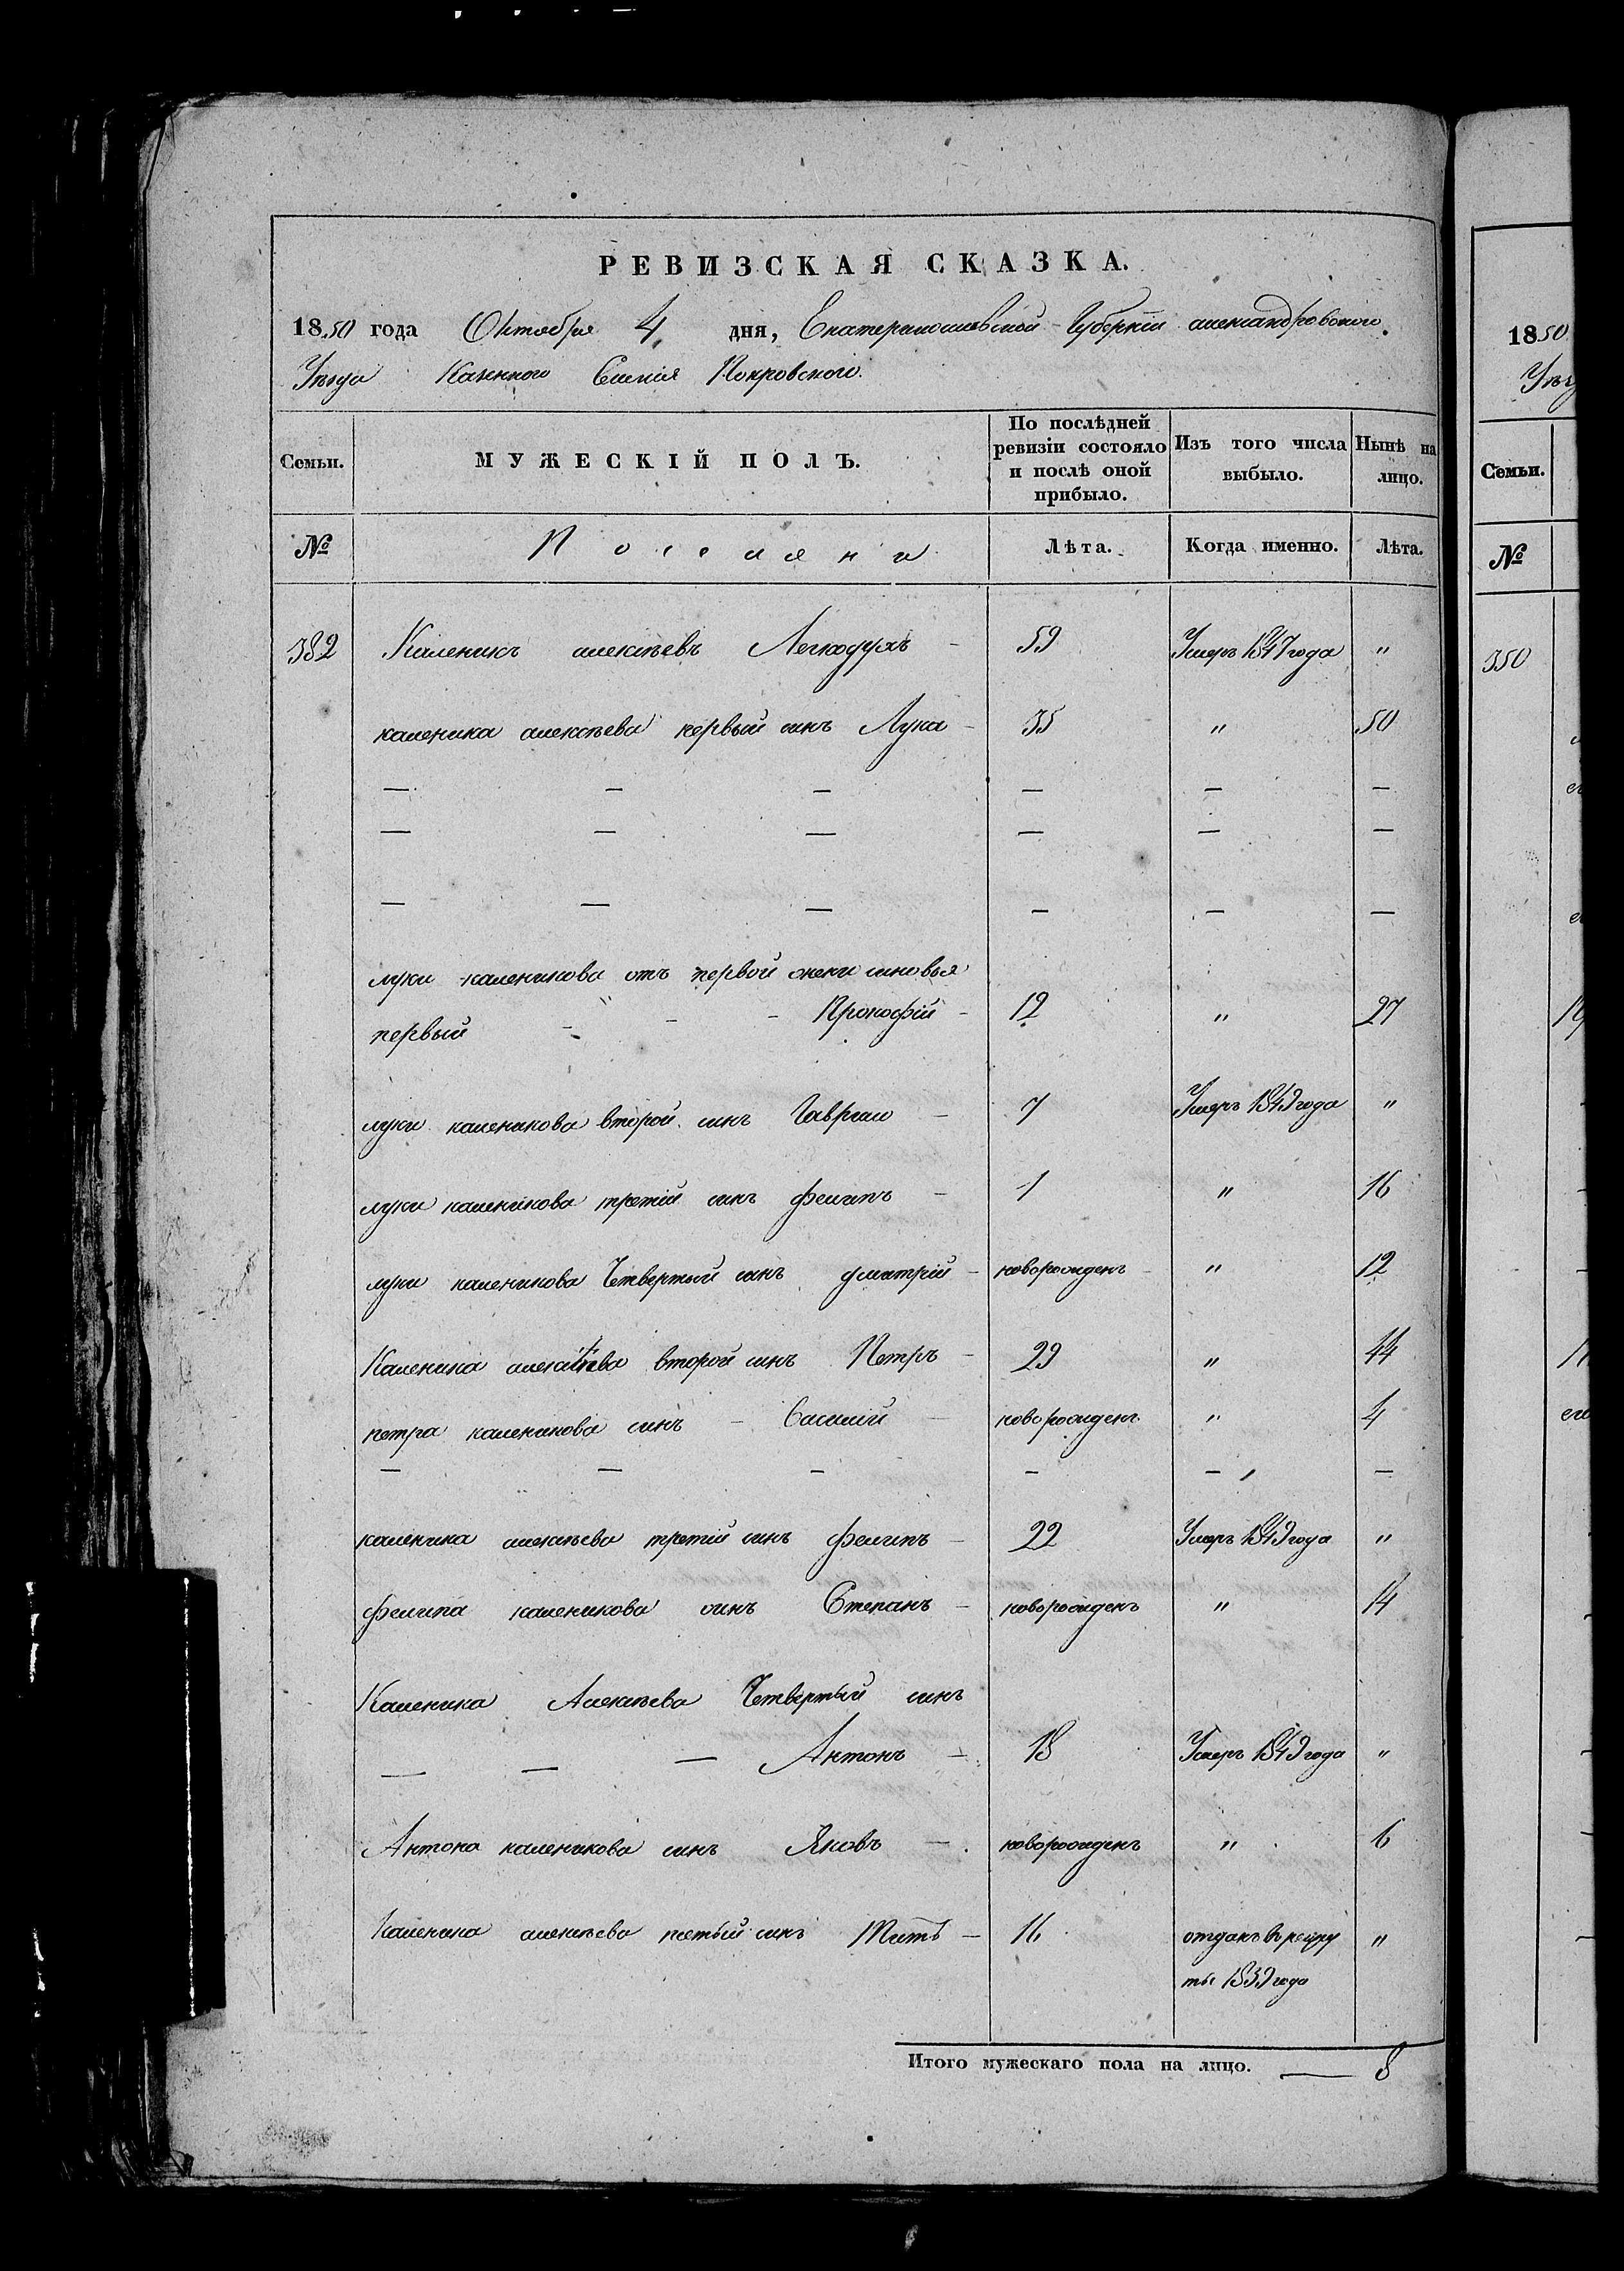 РЕВИЗСКАЯ СКАЗКА.
1850 года Октября 4 дня, Екатеринославской Губерніи александровского
Уезда Казенного Селенія Покровского.
Семьи. МУЖЕСКІЙ ПОЛЪ. По послѣдней ревизіи состояло и послѣ оной прибыло. Изъ того числа выбыло. Нынѣ на лицо.
№ Поселяни Лѣта. Когда именно. Лѣта.
382 Каленикъ алексѣевъ Легкодухъ - 59 Умеръ 1847 года "
каленика алексѣева первый синъ Лука - 35 " 50
— — — — — —
— — — — — —
— — — — — —
луки каленикова отъ первой жени синовья
первый - - - Прокофій - 12 " 27
луки каленикова второй синъ Гаврило - 7 Умеръ 1849 года "
луки каленикова третій синъ филипъ - 1 " 16
луки каленикова Четвертый синъ дмитрій - новорожденъ - " 12
Каленика алексѣева второй синъ Петръ - 29 " 44
петра каленикова синъ - Василій - новорожденъ " 4
— — — — — —
каленика алексѣева третій синъ филипъ - 22 Умеръ 1849 года "
филипа каленикова синъ Степанъ - новорожденъ " 14
Каленика Алексѣева Четвертый синъ
— — — Антонъ - 18 Умеръ 1849 года "
Антона каленикова синъ Яковъ - новорожденъ " 6
Каленика алексѣева пятый синъ Титъ - 16 отданъ в рекру "
ты 1839 года
Итого мужескаго пола на лицо. — 8
1850
Уез
Семьи.
№
350